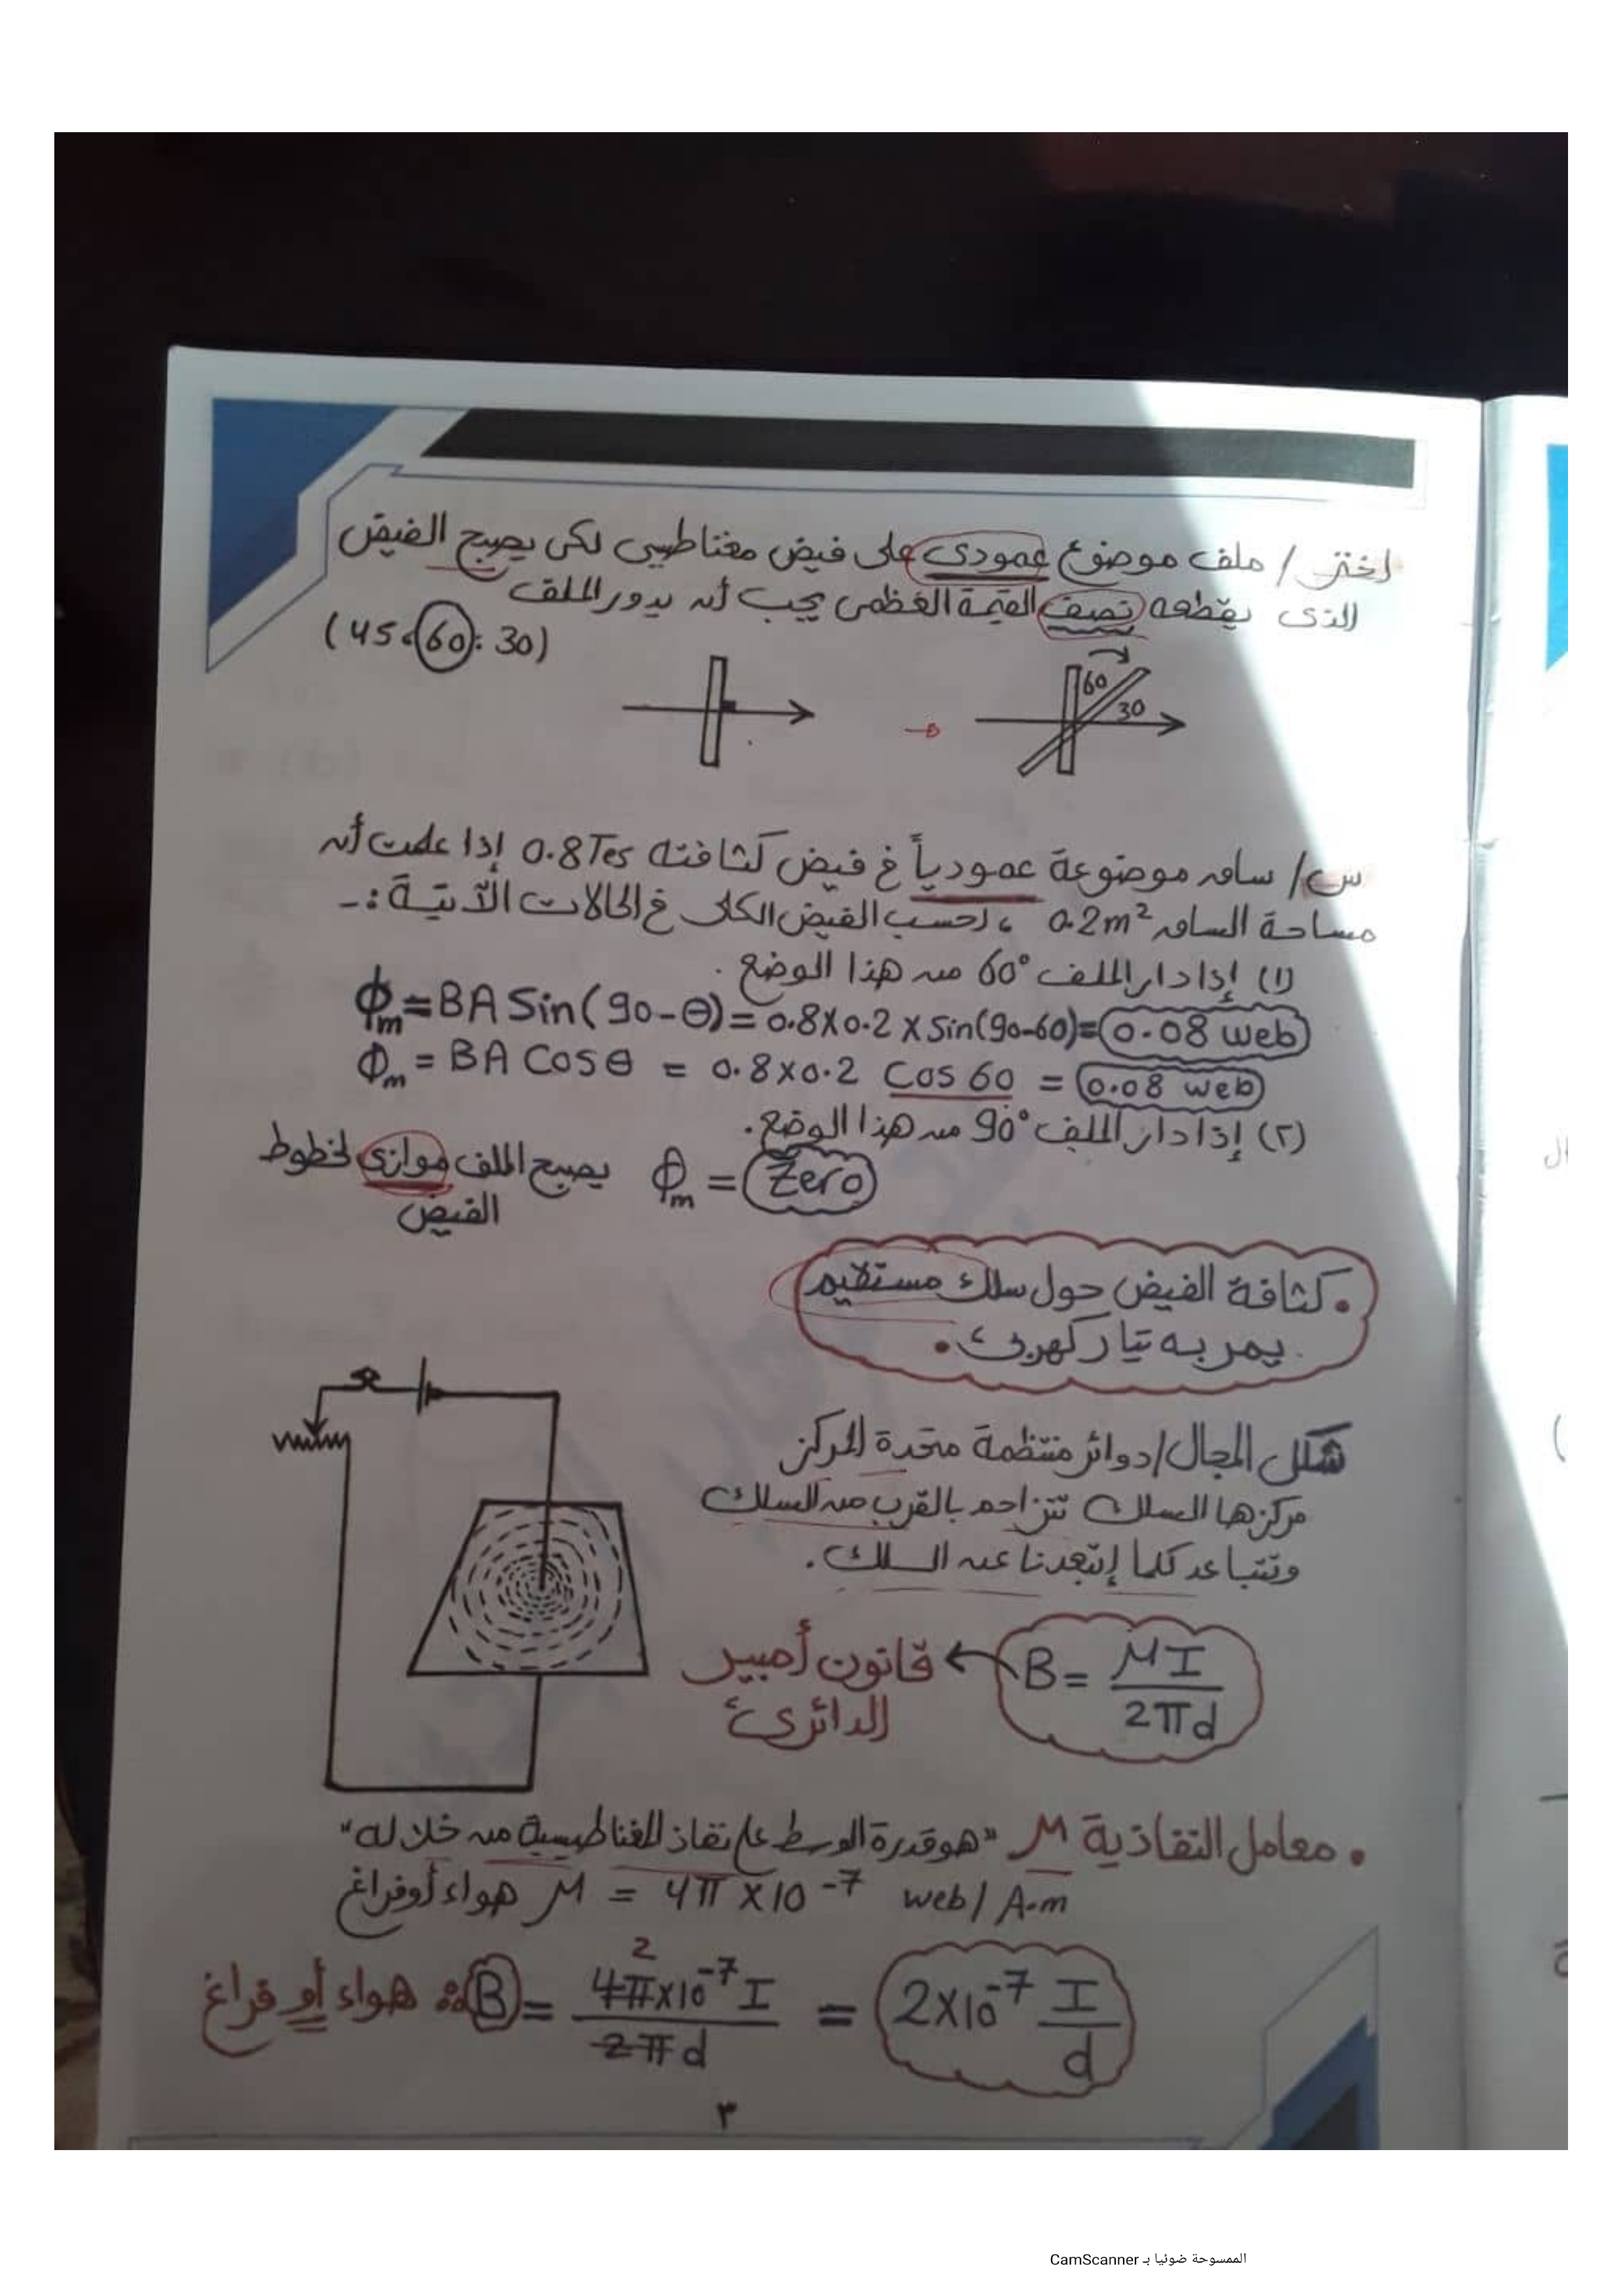 اختر / ملف موضوع عمودى على فيض مغناطيسى لكى يصبح الفيض
الذى يقطعه نصف القيمة العظمى يجب أن يدور الملف
(45، 60، 30)
60
30
س/ ساق موضوعة عمودياً فى فيض كثافته 0.8Tes إذا علمت أن
مساحة الساق 0.2m² ، احسب الفيض الكلى فى الحالات الآتية :-
(١) إذا دار الملف 60° من هذا الوضع .
ϕm = BA Sin(90-θ) = 0.8X0.2 X Sin(90-60) = 0.08 web
ϕm = BA Cosθ = 0.8X0.2 Cos 60 = 0.08 web
(٢) إذا دار الملف 90° من هذا الوضع .
ϕm = Zero يصبح الملف موازى لخطوط
الفيض
• كثافة الفيض حول سلك مستقيم
يمر به تيار كهربىء •
شكل المجال / دوائر منتظمة متحدة المركز
مركزها السلك تتزاحم بالقرب من السلك
وتتباعد كلما إبتعدنا عن السلك .
B = μI / 2πd ← قانون أمبير
الدائرىء
• معامل النفاذية μ "هو قدرة الوسط على نفاذ المغناطيسية من خلاله"
μ هواء أو فراغ = 4π X 10⁻⁷ web / A.m
∴ B هواء أو فراغ = 4π x 10⁻⁷ I / 2π d = 2X10⁻⁷ I / d
2
٣
الممسوحة ضوئيا بـ CamScanner